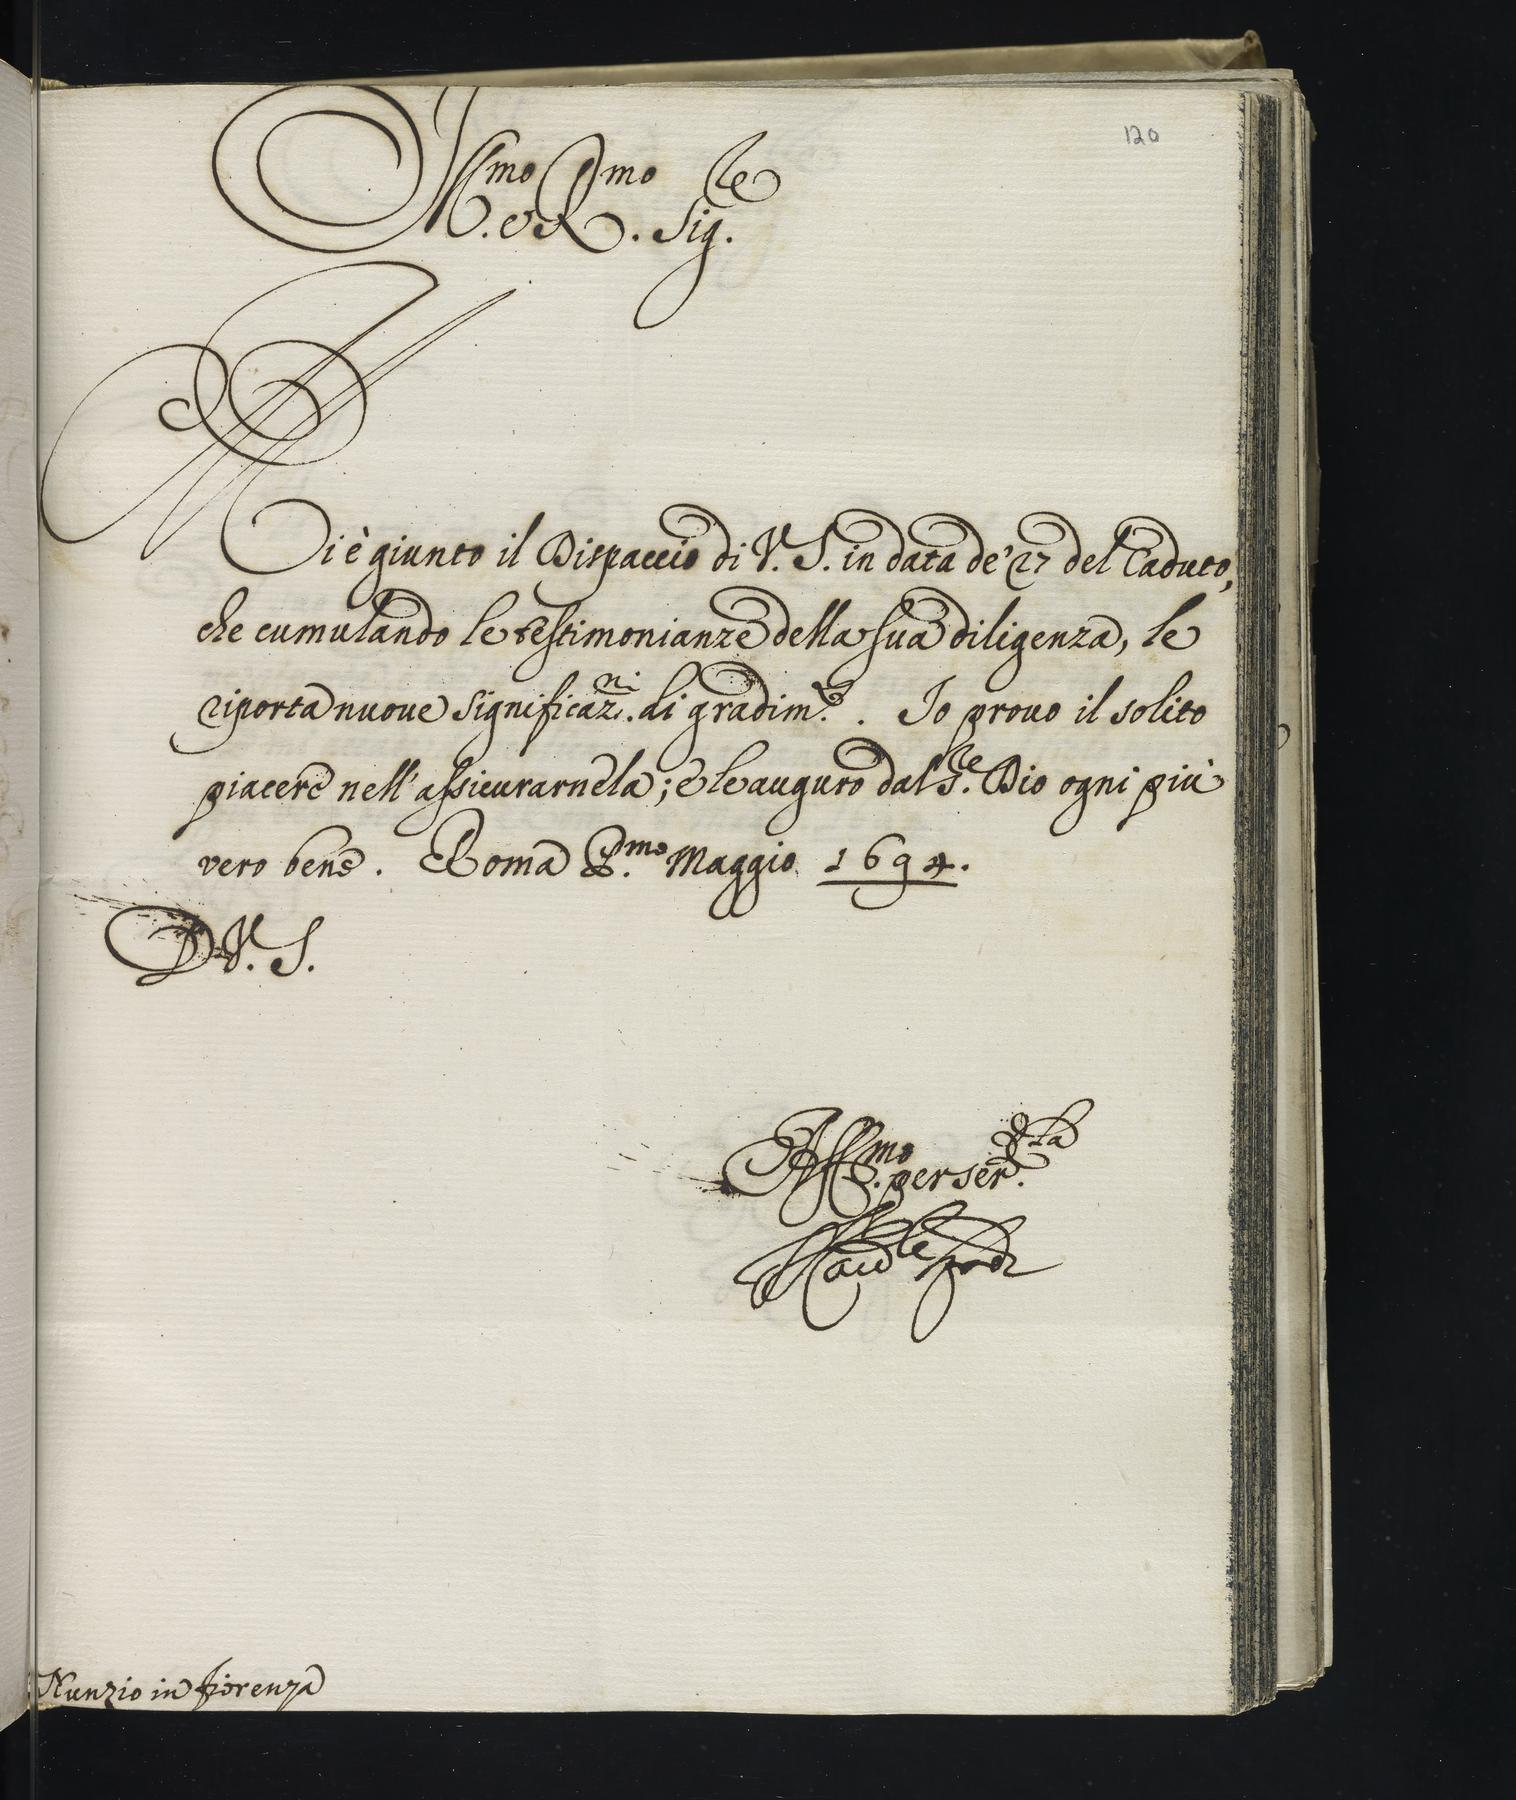 120
Ill.mo e R.mo Sig.re
Mi è giunto il Dispaccio di V. S. in data de' 27 del Caduto,
che cumulando le testimonianze della sua diligenza, le
riporta nuove significaz.ni di gradim.to. Io provo il solito
piacere nell' assicurarnela; e le auguro dal S.re Dio ogni più
vero bene. Roma P.mo Maggio 1694.
D V. S.
Aff.mo per ser.la
Nunzio in fiorenza